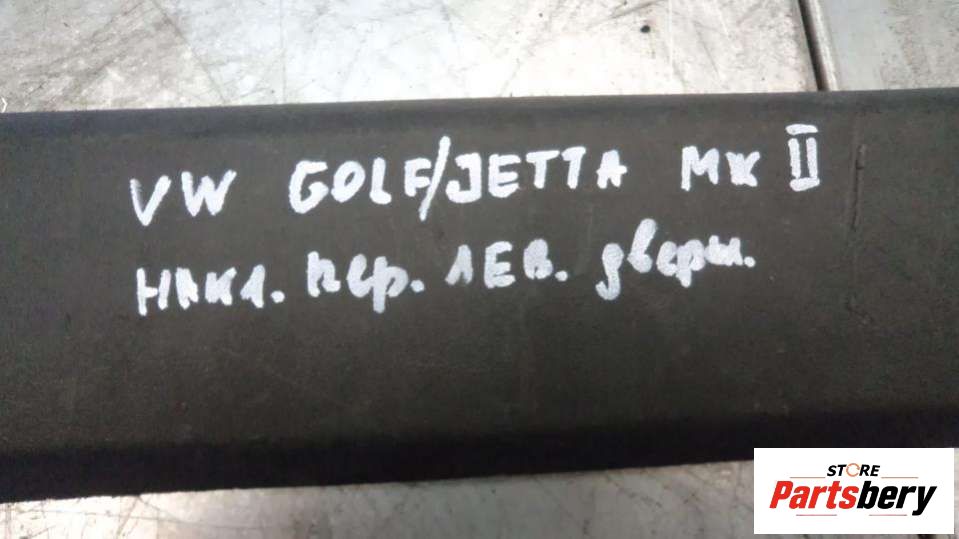 VW GOLF/JETTA MK II
НАКЛ. пер. ЛЕВ. двери.
STORE
Partsbery